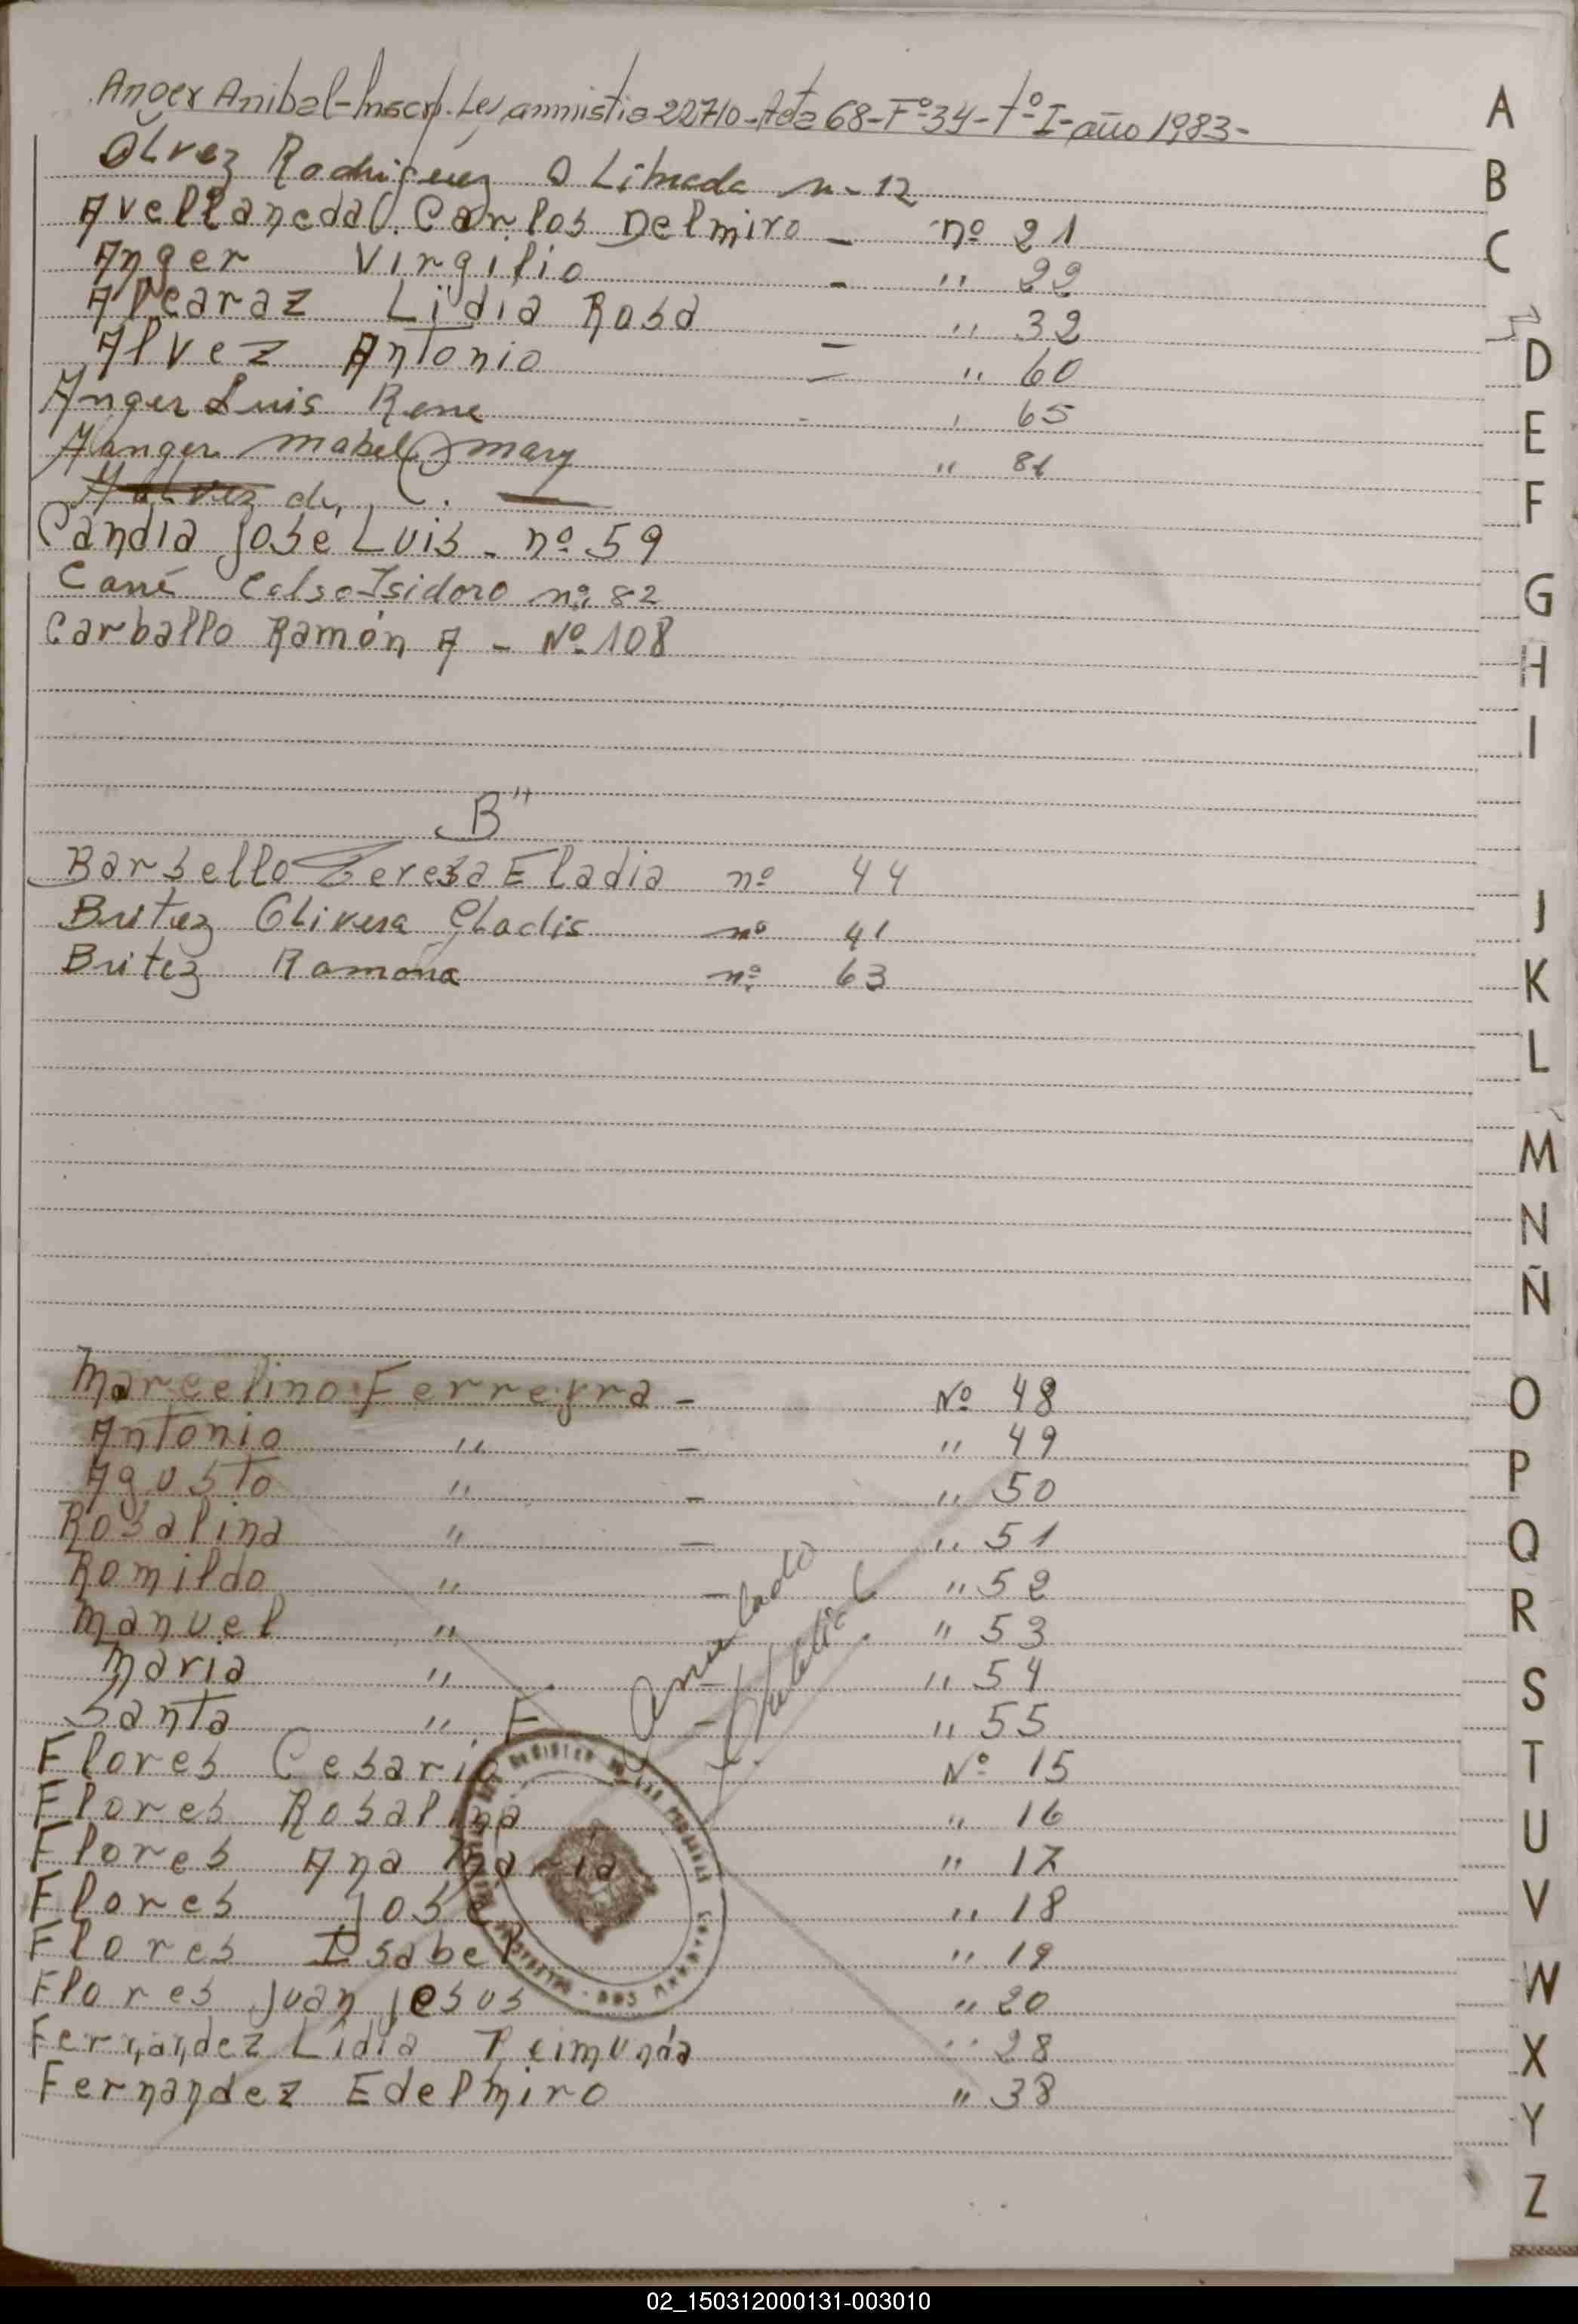 Anger Anibal-Inscrp. Ley amnistia 22710-Acta 68-Fº34-tº I-año 1983-
Alvez Rodriguez A Librada n-12
Avellaneda C. Carlos Delmiro - nº 21
Anger Virgilio - " 22
Alcaraz Lidia Rosa " 32
Alvez Antonio - " 60
Anger Luis Rene - " 65
Aanger Mabel mary " 81
de
Candia José Luis - nº 59
Cané Celso Isidoro nº 82
Carballo Ramón A - Nº 108
B"
Barsello Teresa Eladia nº 44
Britez Olivera Gladis nº 41
Britez Ramona nº 63
Marcelino Ferreyra - Nº 48
Antonio " - " 49
Agusto " - " 50
Rosalina " - " 51
Romildo " - " 52
Manuel " " 53
Maria " - " 54
Santa " F - " 55
Anulado
Flores Cesario Nº 15
Flores Rosalina " 16
Flores Ana Maria " 17
Flores José " 18
Flores Isabel " 19
Flores Juan Jesus " 20
Fernandez Lidia Reimunda " 28
Fernandez Edelmiro " 38
A
B
C
D
E
F
G
H
I
J
K
L
M
N
Ñ
O
P
Q
R
S
T
U
V
W
X
Y
Z
02_150312000131-003010